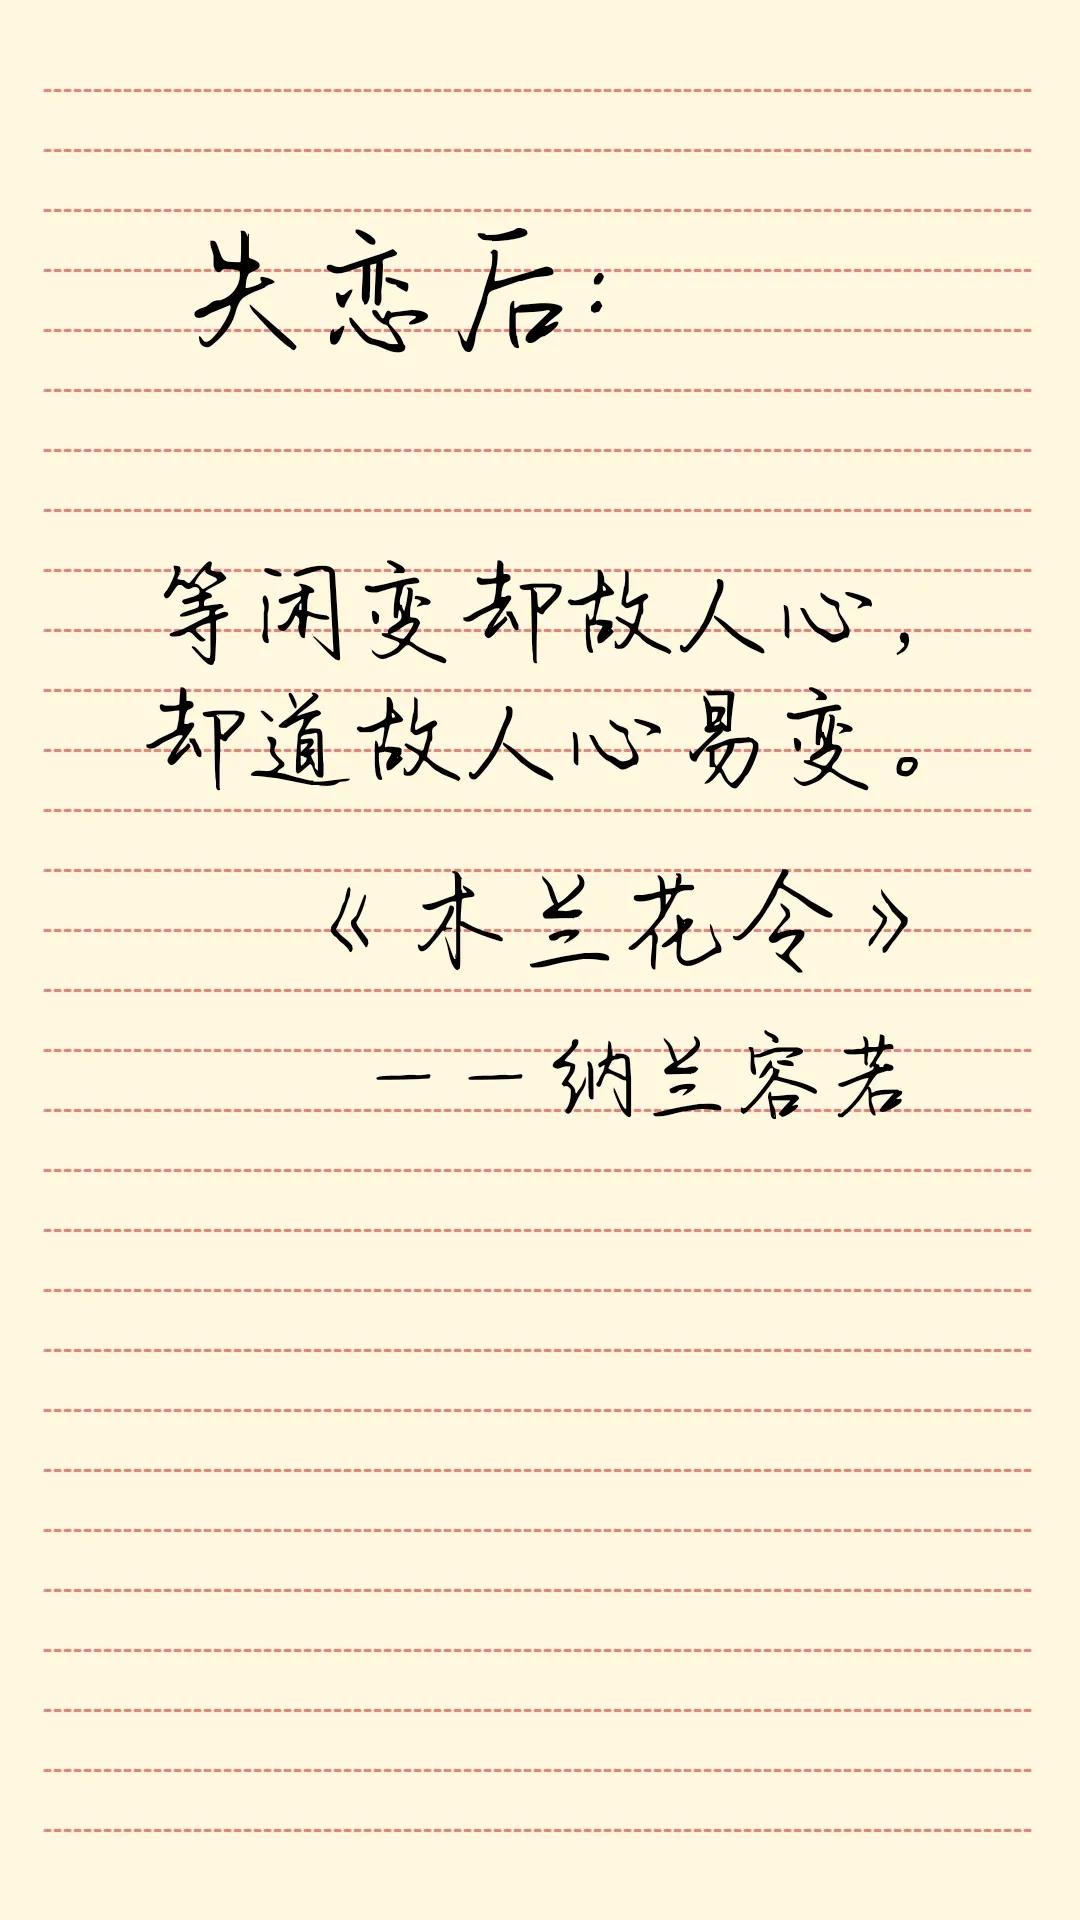 失恋后:
等闲变却故人心,
却道故人心易变。
《木兰花令》
——纳兰容若